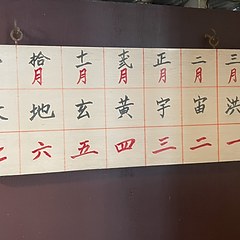 三月 洪 一
二月 宙 二
正月 宇 三
十弍月 黃 四
十一月 玄 五
拾月 地 六